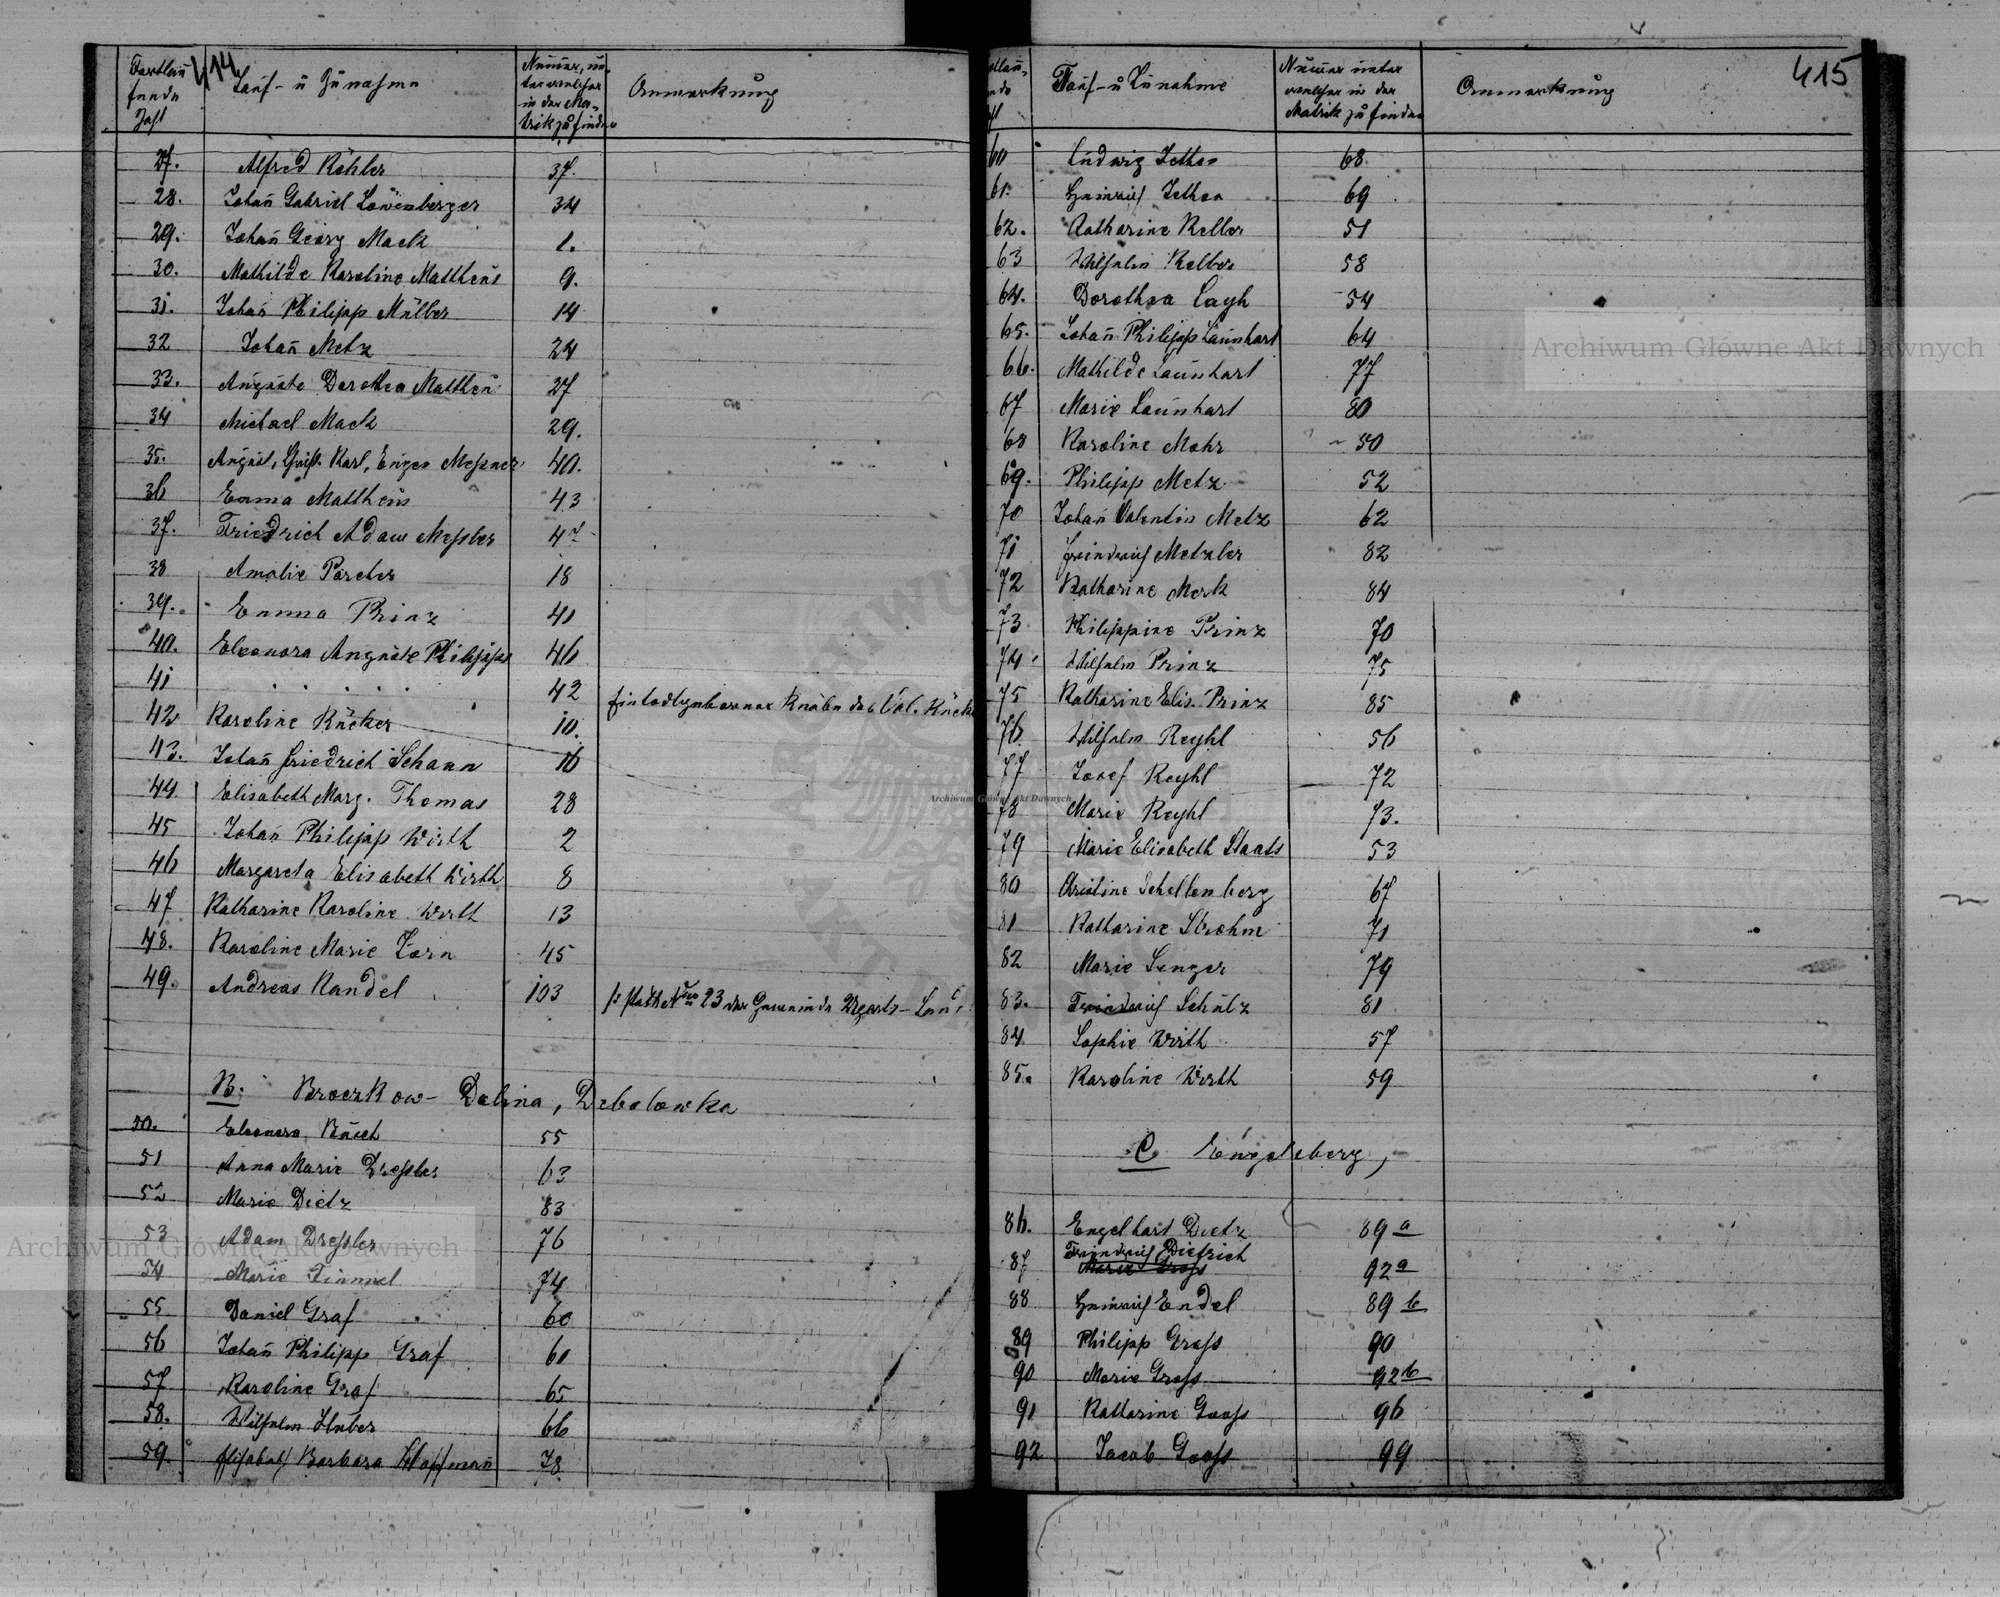 414
Fortlau
fende
Zahl
Tauf- u Zunahme
Numer, un-
ter welcher
in der Ma-
trik zu finden
Anmerkung
27. Alfred Köhler 37.
28. Johañ Gabriel Löwenberger 34
29. Johañ Georg Mack 1.
30. Mathilde Karoline Mattheüs 9.
31. Johañ Philipp Müller 14
32 Johañ Metz 24
33. Auguste Dorothea Mattheü 27
34 Michael Mack 29.
35. August, Christ. Karl, Eugen Meßner 40.
36 Emma Mattheüs 43
37. Friedrich Adam Meßler 47
38 Amalie Porcher 18
39. Emma Prinz 41
40. Eleonora Auguste Philipps 46
41 . . . . . 42 Ein todtgeborener Knabe des Val. Rücke
42 Karoline Rücker 10.
43. Johañ Friedrich Schaun 16
44 Elisabeth Marg. Thomas 28
45 Johañ Philipp Wirth 2
46 Margareta Elisabeth Wirth 8
47 Katharine Karoline Wirth 13
48. Karoline Marie Zorn 45
49. Andreas Kandel 103 23 der Gemeinde
B: Broczkow- Dolina, Debolowka
50. Eleonora Bäuch 55
51 Anna Marie Dreßler 63
52 Marie Dietz 83
53 Adam Dreßler 76
54 Marie Fimmel 74
55 Daniel Graf 60
56 Johañ Philipp Graf 61
57 Karoline Graf 65
58. Wilhelm Huber 66
59. Elisabeth Barbara 78
415
Tauf- u Zunahme
Numer unter
welcher in der
Matrik zu finden
Anmerkung
60 Ludwig Jethon 68
61. Heinrich Jethon 69
62. Katharine Keller 51
63 Wilhelm Kelber 58
64. Dorothea Layh 54
65. Johañ Philipp Launhart 64
66. Mathilde Launhart 77
67 Marie Launhart 80
68 Karoline Mohr 50
69. Philipp Metz 52
70 Johañ Valentin Metz 62
71 Friedrich Metzler 82
72 Katharine Merk 84
73 Philippine Prinz 70
74 Wilhelm Prinz 75
75 Katharine Elis. Prinz 85
76 Wilhelm Reyhl 56
77 Josef Reyhl 72
78 Marie Reyhl 73.
79 Marie Elisabeth Staats 53
80 Christine Schellenberg 67
81 Katharine Strohm 71
82 Marie Senger 79
83. Friedrich Schulz 81
84 Sophie Wirth 57
85. Karoline Wirth 59
C Engelsberg,
86. Engelhart Dietz 89 a
87 Friedrich Dietrich 92 a
Marie Groß
88 Heinrich Endel 89 b
89 Philipp Groß 90
90 Marie Groß 92 b
91 Katharine Gooß 96
92 Jacob Gooß 99
Archiwum Główne Akt Dawnych
Archiwum Główne Akt Dawnych
Archiwum Główne Akt Dawnych